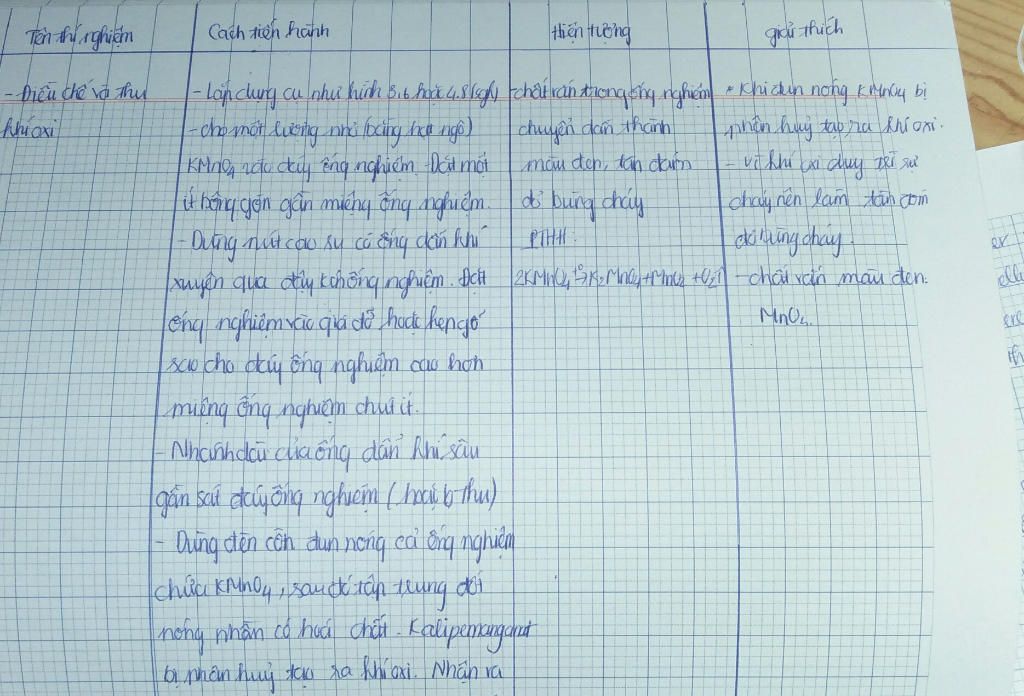 Tên thí nghiệm
Cách tiến hành
Hiện tượng
giải thích
- Điều chế và thu
khí oxi
- Lắp dụng cụ như hình 3.6 hoặc 4.8 (sgk)
- cho một lượng nhỏ (bằng hạt ngô)
KMnO4 vào đáy ống nghiệm. Đặt một
ít bông gòn gần miệng ống nghiệm.
- Dùng nút cao su có ống dẫn khí
xuyên qua đậy ống nghiệm. Đặt
ống nghiệm vào giá đỡ hoặc kẹp gỗ
sao cho đáy ống nghiệm cao hơn
miệng ống nghiệm chút ít.
- Nhánh dài của ống dẫn khí sâu
gần sát đáy ống nghiệm (hoặc lọ thu)
- Dùng đèn cồn đun nóng cả ống nghiệm
chứa KMnO4, sau đó tập trung đốt
nóng phần có hoá chất. Kalipemanganat
bị phân huỷ tạo ra khí oxi. Nhận ra
chất rắn trong ống nghiệm
chuyển dần thành
màu đen, tàn đóm
đỏ bùng cháy
PTHH:
2KMnO4 t° K2MnO4 + MnO2 + O2↑
• Khi đun nóng KMnO4 bị
phân huỷ tạo ra khí oxi.
- Vì khí oxi duy trì sự
cháy nên làm tàn đóm
đỏ bùng cháy.
- chất rắn màu đen:
MnO4.
er
ere